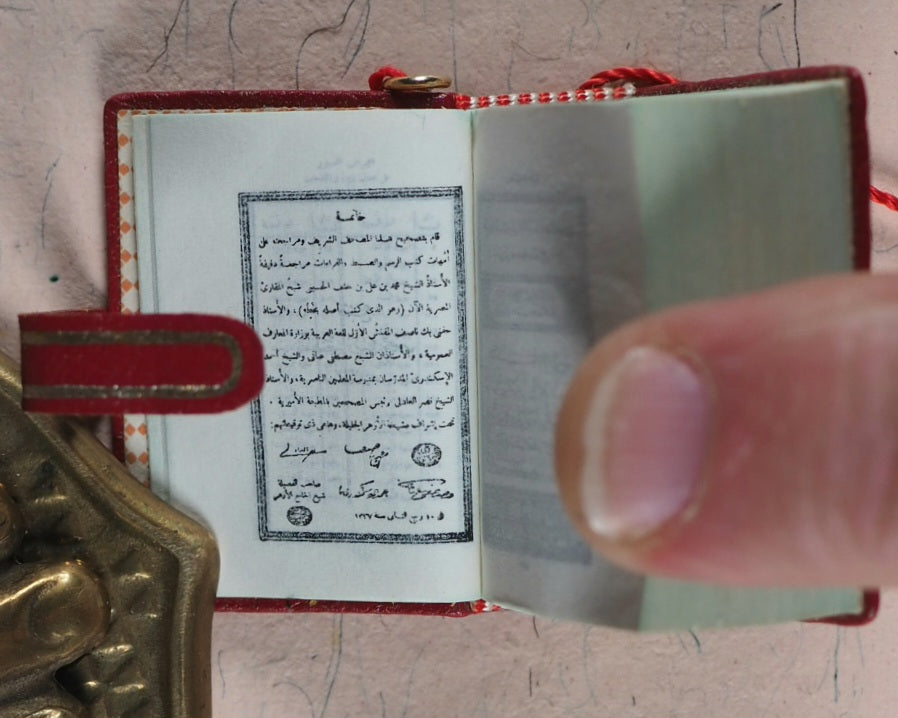 خاتمة
قام بتصحيح هذا المصحف الشريف ومراجعته على
أمهات كتب الرسم والضبط والقراءات مراجعةً دقيقةً
الأستاذُ الشيخ محمد بن على بن خلف الحسينى شيخُ المقارئ
المصرية الآن (وهو الذى كتب أصله بخطِّه)، والأستاذ
حفنى بك ناصف المفتشُ الأوّل للغة العربية بوزارة المعارف
العمومية، والأُستاذان الشيخ مصطفى عنانى والشيخ أحمد
الإسكندرىّ المدرّسان بمدرسة المعلمين الناصرية، والأستاذ
الشيخ نصر العادلى رئيس المصححين بالمطبعة الأميرية.
تحت إشراف مشيخة الأزهر الجليلة، وهاهى ذى توقيعاتهم:
صاحب الفضيلة
شيخ الجامع الأزهر
فى ١٠ ربيع الثانى سنة ١٣٣٧